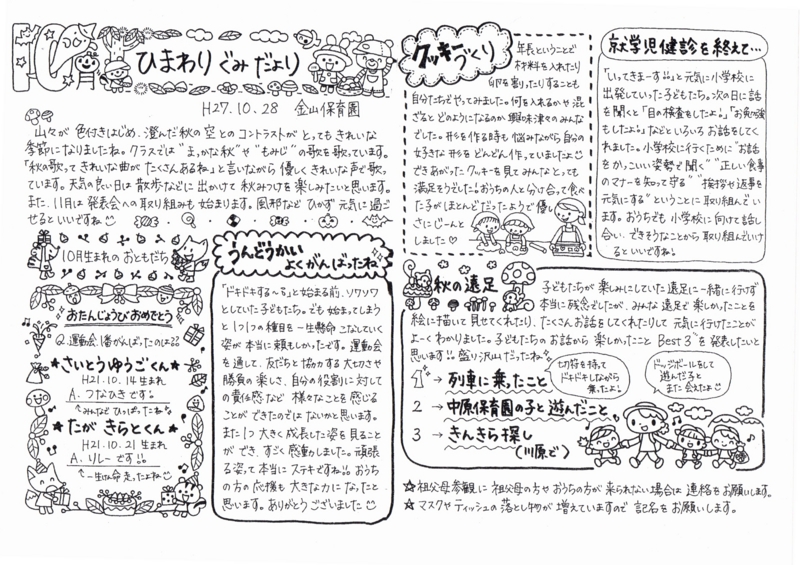 10
ひまわりぐみだより
H27.10.28 金山保育園
山々が色付きはじめ、澄んだ秋の空とのコントラストがとってもきれいな
季節になりましたね。クラスでは"まっかな秋"や"もみじ"の歌を歌っています。
「秋の歌ってきれいな曲がたくさんあるね」と言いながら優しくきれいな声で歌っ
ています。天気の良い日は散歩などに出かけて秋みつけを楽しみたいと思います。
また、11月は発表会への取り組みも始まります。風邪などひかず元気に過ご
せるといいですね
10月生まれのおともだち
おたんじょうびおめでとう
Q.運動会1番がんばったのは??
★さいとうゆうごくん★
H21.10.14生まれ
A.つなひきです!!
みんなでひっぱったね
★たが きらとくん★
H21.10.21生まれ
A.リレーです!!
一生けん命走ったよね
うんどうかい
よくがんばったね
「ドキドキする～る」と始まる前、ソワソワ
としていた子どもたち。でも始まってしまう
と1つ1つの種目を一生懸命こなしていく
姿が本当に頼もしかったです。運動会
を通して、友だちと協力する大切さや
勝負の楽しさ、自分の役割に対して
の責任感など様々なことを感じる
ことができたのではないかと思います。
また1つ大きく成長した姿を見ること
ができ、すごく感動しました。頑張
る姿って本当にステキですね!!おうち
の方の応援も大きな力になったと
思います。ありがとうございました
クッキーづくり
年長ということで
材料を入れたり
卵を割ったりすることも
自分たちでやってみました。何を入れるかや混
ざるとどのようになるのか興味津々のみんな
でした。形を作る時も悩みながら自分の
好きな形をどんどん作っていましたよ
できあがったクッキーを見てみんなとっても
満足そうでした。おうちの人と分け合って食べ
た子がほとんどだったようで優し
さにじーんと
しました♡
就学児健診を終えて…
「いってきまーす!!」と元気に小学校に
出発していった子どもたち。次の日に話
を聞くと「目の検査をしたよ」「お食の強
もしたよ」などといろいろお話をしてく
れました。小学校に行くために"お話
をかっこいい姿勢で聞く""正しい食事
のマナーを知って守る""挨拶や返事を
元気にする"ということに取り組んでい
ます。おうちでも小学校に向けて話し
合い、できそうなことから取り組んでいけ
るといいですね
秋の遠足
子どもたちが楽しみにしていた遠足に一緒に行けず
本当に残念でしたが、みんな遠足で楽しかったことを
絵に描いて見せてくれたり、たくさんお話をしてくれたりして元気に行けたことが
よくわかりました。子どもたちのお話から楽しかったことBest3を発表したいと
思います!!盛り沢山だったね
1→列車に乗ったこと
切符を持って
ドキドキしながら
乗ったよ
2→中原保育園の子と遊んだこと
ドッジボールをして
遊んだ子と
また会えたよ
3→きんきら探し
(川原で)
☆祖父母参観に祖父母の方やおうちの方が来られない場合は連絡をお願いします。
☆マスクやティッシュの落とし物が増えていますので記名をお願いします。